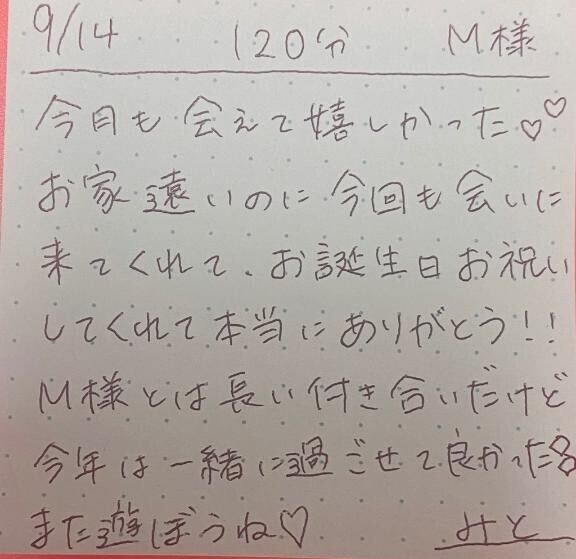 9/14 120分 M様
今日も会えて嬉しかった♡♡
お家遠いのに今回も会いに
来てくれて、お誕生日お祝い
してくれて本当にありがとう!!
M様とは長い付き合いだけど
今年は一緒に過ごせて良かった
また遊ぼうね♡ みと